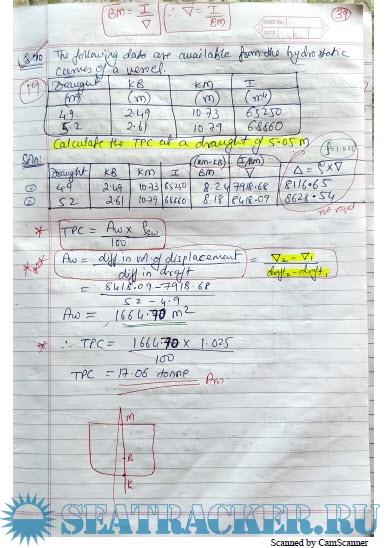 BM = I/∇ ∴ ∇ = I/BM
39
PAGE NO.
DATE
The following data are available from the hydrostatic
curves of a vessel.
19
Draught KB KM I
(m) (m) (m) (m⁴)
4.9 2.49 10.73 65250
5.2 2.61 10.79 68860
Calculate the TPC at a draught of 5.05 m
Soln:
(KM-KB) (I/BM) ρ=1.025
Draught KB KM I BM ∇ Δ = ρ×∇
① 4.9 2.49 10.73 65250 8.24 7918.68 8116.65
② 5.2 2.61 10.79 68860 8.18 8418.09 8628.54
not reqd
* TPC = Aw × ρsw / 100
** Aw = diff in vol of displacement / diff in draft = ∇₂ - ∇₁ / draft₂ - draft₁
= 8418.09 - 7918.68 / 5.2 - 4.9
Aw = 1664.70 m²
* ∴ TPC = 1664.70 × 1.025 / 100
TPC = 17.06 tonne Ans.
M
B
K
SEATRACKER.RU
Scanned by CamScanner